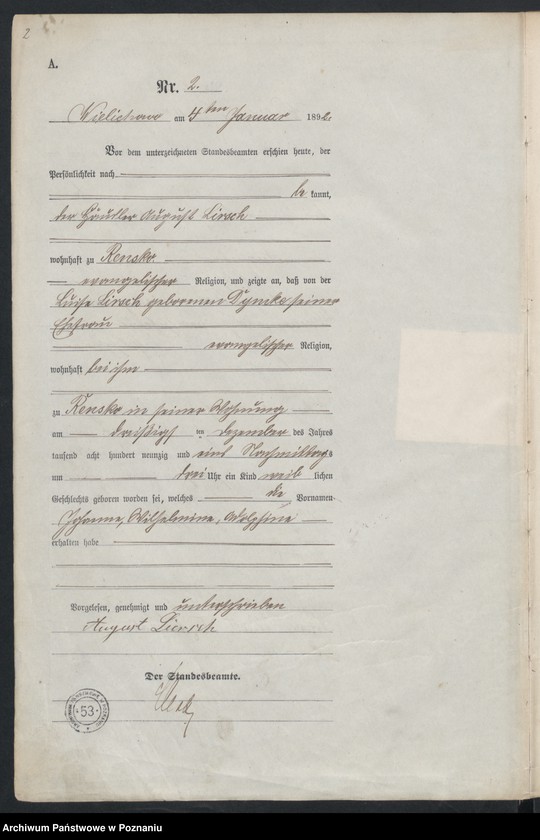 2
A.
Nr. 2.
Wielichowo am 4ten Januar 1892.
Vor dem unterzeichneten Standesbeamten erschien heute, der
Persönlichkeit nach
be kannt,
der Häusler August Liersch
wohnhaft zu Rensko
evangelischer Religion, und zeigte an, daß von der
Luise Liersch geborenen Dymke seiner
Ehefrau
evangelischer Religion,
wohnhaft bei ihm
zu Rensko in seiner Wohnung
am dreißigsten Dezember des Jahres
tausend acht hundert neunzig und eins Nachmittags
um drei Uhr ein Kind weib lichen
Geschlechts geboren worden sei, welches die Vornamen
Johanne, Wilhelmine, Adolphine
erhalten habe
Vorgelesen, genehmigt und unterschrieben
August Liersch
Der Standesbeamte.
53
Archiwum Państwowe w Poznaniu